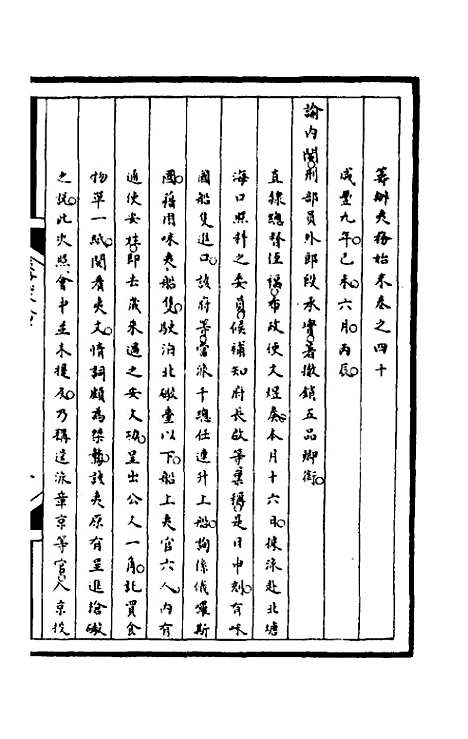 籌辦夷務始末卷之四十
咸豐九年己未六月丙辰
諭內閣刑部員外郎段承實著撤銷五品卿銜
直隸總督恆福布政使文煜奏本月十六日據派赴北塘
海口照料之委員候補知府長啟等稟稱是日申刻有咪
國船隻進口該府等當派千總任連升上船詢係俄羅斯
國藉用咪夷船隻駛泊北礮臺以下船上夷官六人內有
通使安姓即去歲來過之安文公呈出公文一角託買食
物單一紙閱看夷文情詞頗為桀驁該夷原有呈進槍礮
之說此次照會中並未提及乃稱送派章京等官入京投